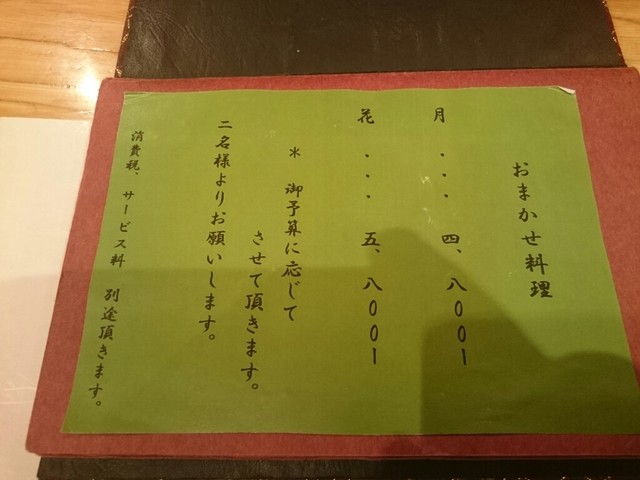 おまかせ料理
月 ・・・ 四、八００ー
花 ・・・ 五、八００ー
＊ 御予算に応じて
させて頂きます。
二名様よりお願いします。
消費税、サービス料 別途頂きます。